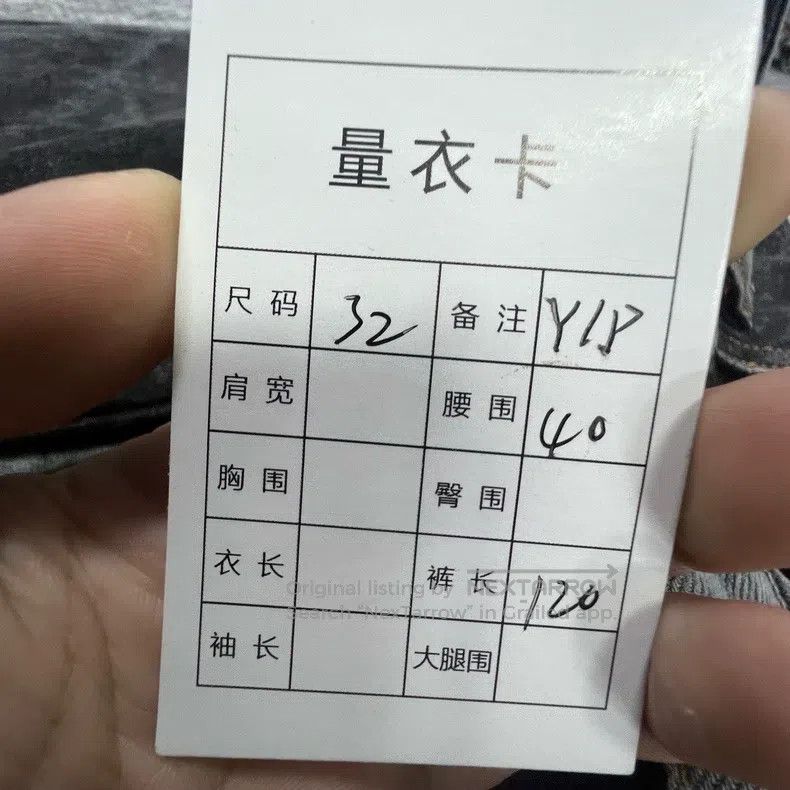 量衣卡
尺码 32 备注 Y18
肩宽 腰围 40
胸围 臀围
衣长 裤长 120
袖长 大腿围
Original listing by NEXTARROW
Search "NexTarrow" in Grailed app.